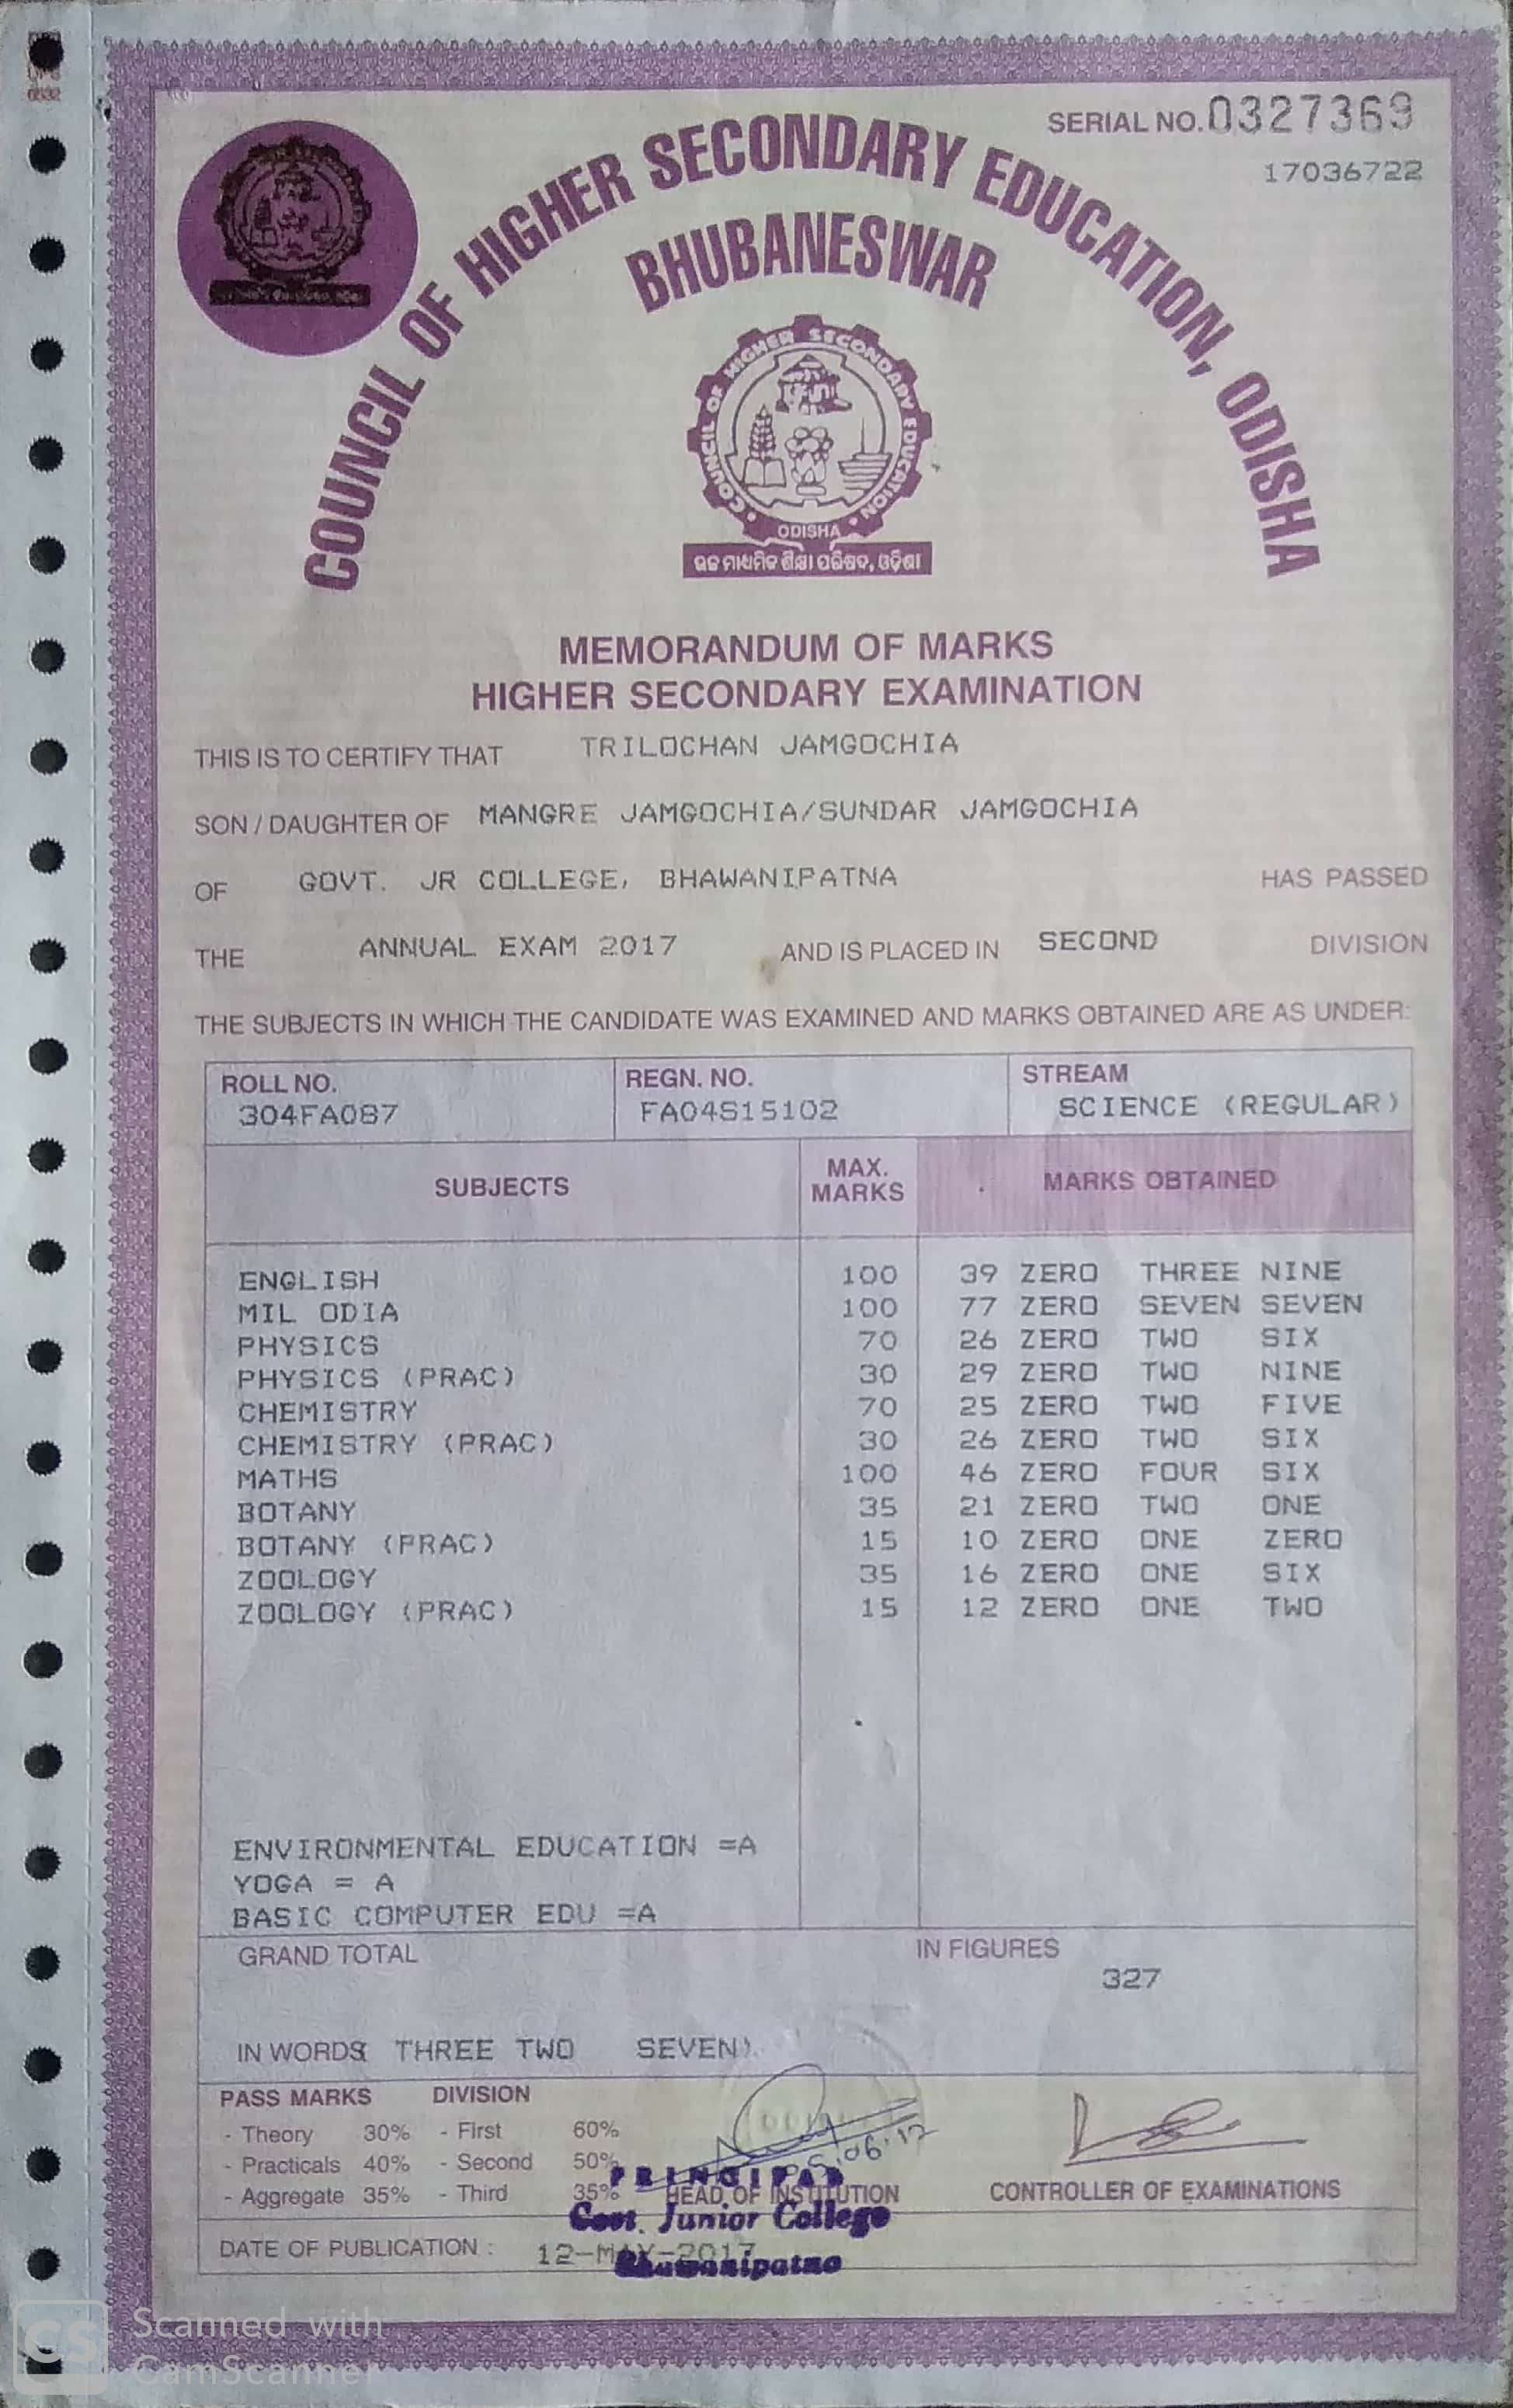 SERIAL NO. 0327369
17036722
COUNCIL OF HIGHER SECONDARY EDUCATION, ODISHA
BHUBANESWAR
COUNCIL OF HIGHER SECONDARY EDUCATION
ODISHA
ଉଚ୍ଚ ମାଧ୍ୟମିକ ଶିକ୍ଷା ପରିଷଦ, ଓଡ଼ିଶା
MEMORANDUM OF MARKS
HIGHER SECONDARY EXAMINATION
THIS IS TO CERTIFY THAT TRILOCHAN JAMGOCHIA
SON / DAUGHTER OF MANGRE JAMGOCHIA/SUNDAR JAMGOCHIA
OF GOVT. JR COLLEGE, BHAWANIPATNA HAS PASSED
THE ANNUAL EXAM 2017 AND IS PLACED IN SECOND DIVISION
THE SUBJECTS IN WHICH THE CANDIDATE WAS EXAMINED AND MARKS OBTAINED ARE AS UNDER:
ROLL NO. REGN. NO. STREAM
304FA087 FA04S15102 SCIENCE (REGULAR)
SUBJECTS MAX. MARKS MARKS OBTAINED
ENGLISH 100 39 ZERO THREE NINE
MIL ODIA 100 77 ZERO SEVEN SEVEN
PHYSICS 70 26 ZERO TWO SIX
PHYSICS (PRAC) 30 29 ZERO TWO NINE
CHEMISTRY 70 25 ZERO TWO FIVE
CHEMISTRY (PRAC) 30 26 ZERO TWO SIX
MATHS 100 46 ZERO FOUR SIX
BOTANY 35 21 ZERO TWO ONE
BOTANY (PRAC) 15 10 ZERO ONE ZERO
ZOOLOGY 35 16 ZERO ONE SIX
ZOOLOGY (PRAC) 15 12 ZERO ONE TWO
ENVIRONMENTAL EDUCATION =A
YOGA = A
BASIC COMPUTER EDU =A
GRAND TOTAL IN FIGURES
327
IN WORDS THREE TWO SEVEN)
PASS MARKS DIVISION
- Theory 30% - First 60%
- Practicals 40% - Second 50%
- Aggregate 35% - Third 35%
PRINCIPAL
HEAD OF INSTITUTION CONTROLLER OF EXAMINATIONS
Govt. Junior College
DATE OF PUBLICATION : 12-MAY-2017
Bhawanipatna
CS Scanned with
CamScanner